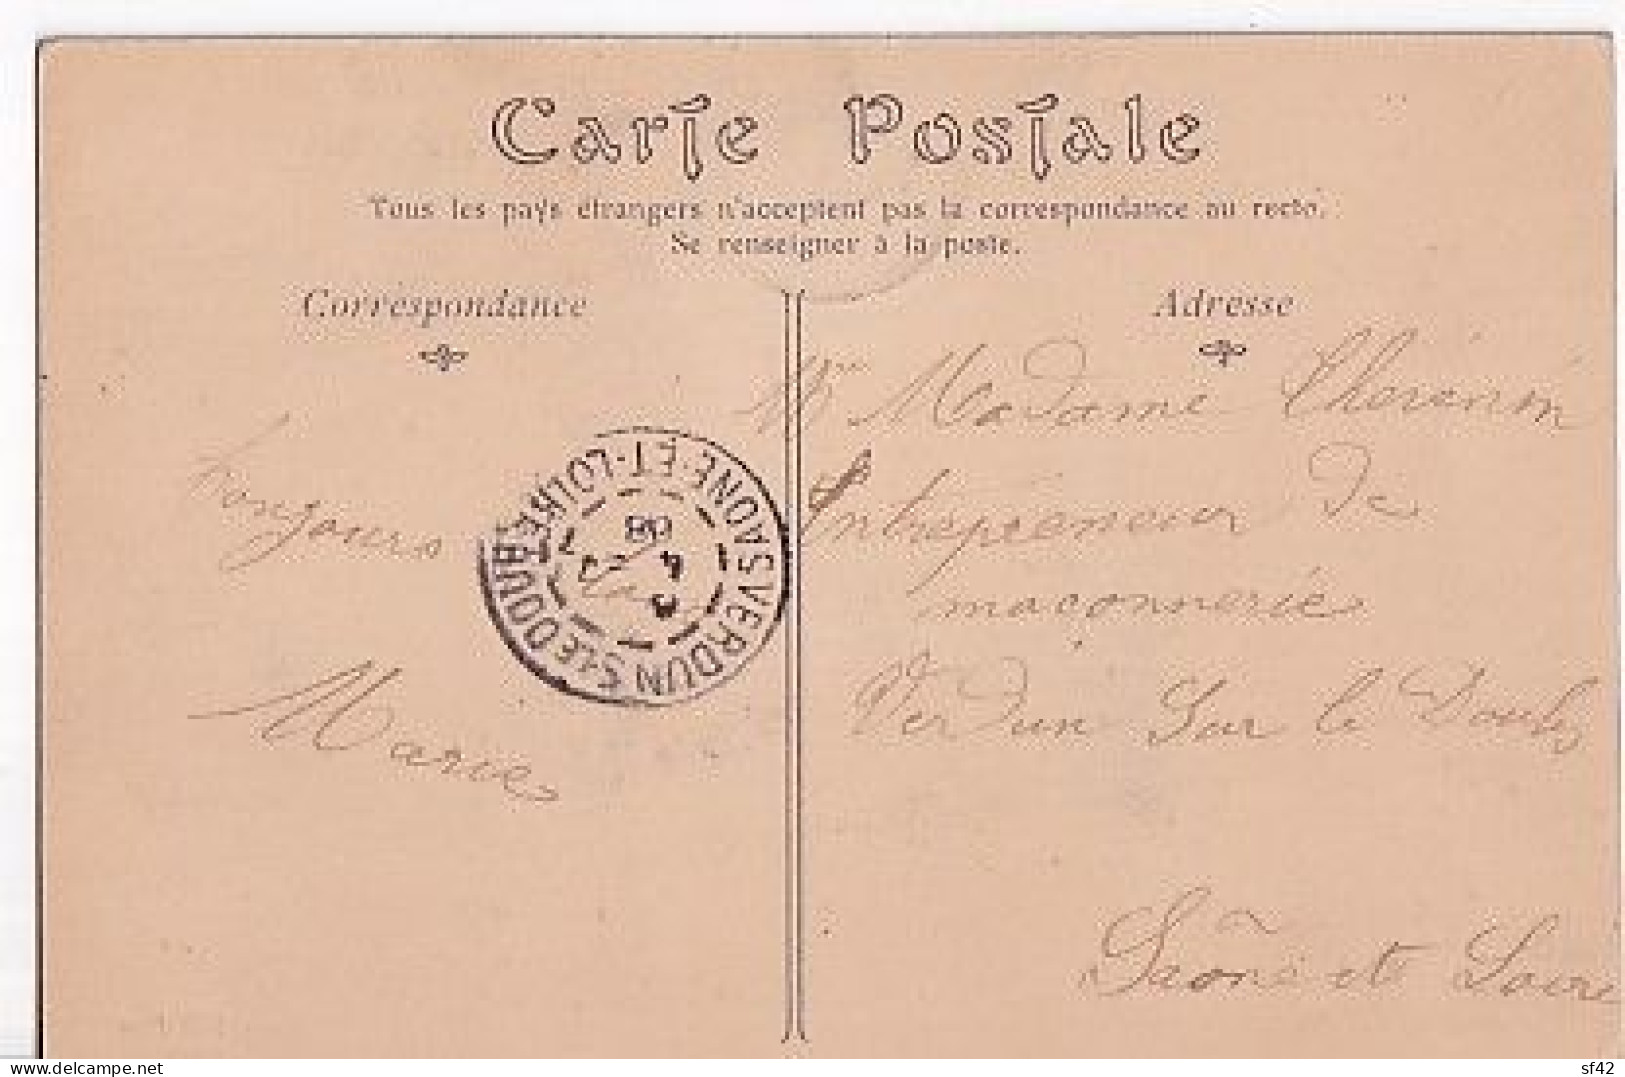 Carte Postale
Tous les pays étrangers n'acceptent pas la correspondance au recto.
Se renseigner à la poste.
Correspondance
Adresse
Mme Madame
Entrepreneur De
maçonnerie
Verdun Sur le Doubs
Saône et Loire
Marie
VERDUN S/LE DOUBS
SAONE-ET-LOIRE
08
delcampe.net
sf42